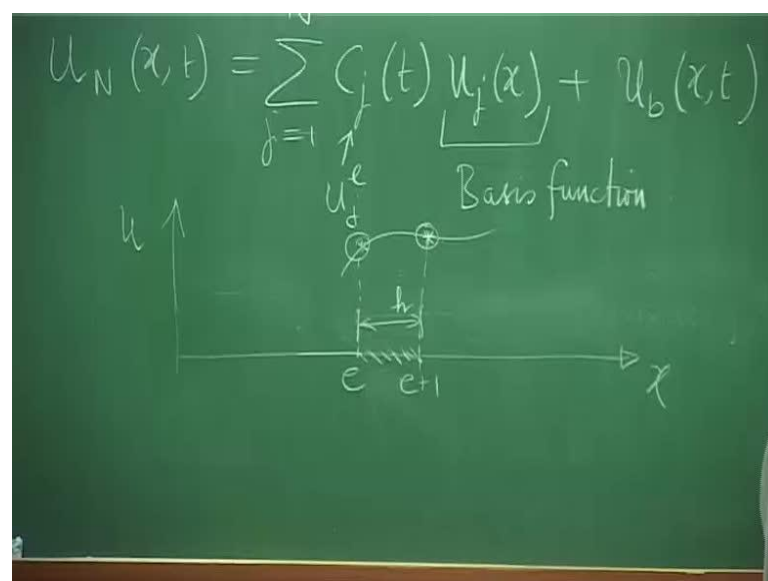 N
u_N (x,t) = ∑ C_j (t) u_j (x) + u_b (x,t)
j=1
u_j^e
Basis function
u
h
e e+1
x